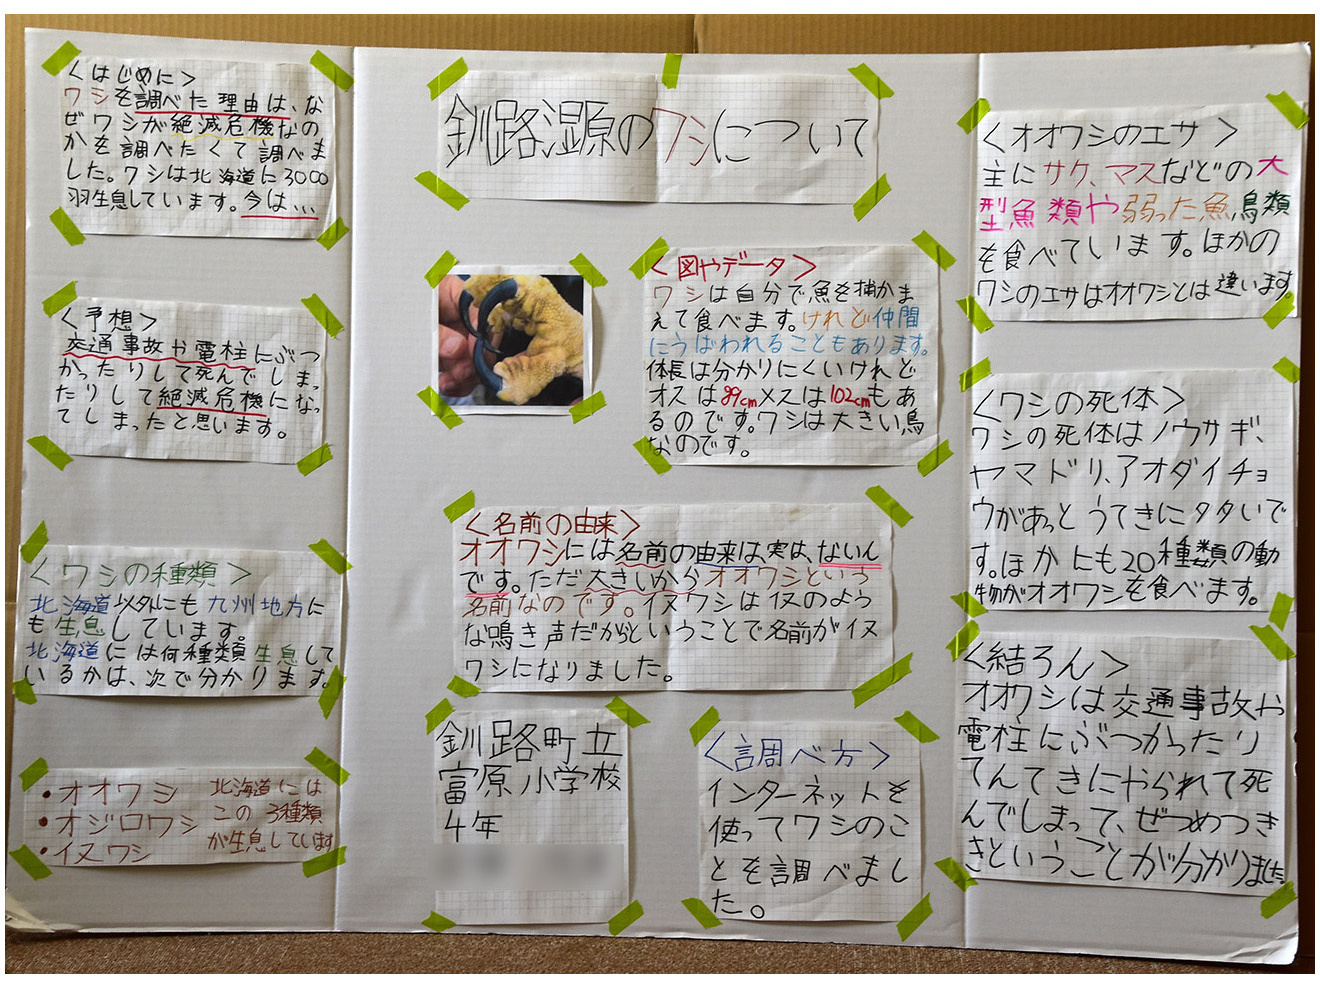 <はじめに>
ワシを調べた理由は、な
ぜワシが絶滅危機なの
かを調べたくて調べま
した。ワシは北海道に3000
羽生息しています。今は、、、
<予想>
交通事故や電柱にぶつ
かったりして死んでしまっ
たりして絶滅危機になっ
てしまったと思います。
<ワシの種類>
北海道以外にも九州地方に
も生息しています。
北海道には何種類生息して
いるかは、次で分かります。
・オオワシ
・オジロワシ
・イヌワシ
北海道には
この3種類
が生息しています
釧路湿原のワシについて
<図やデータ>
ワシは自分で魚を捕かま
えて食べます。けれど仲間
にうばわれることもあります。
体長は分かりにくいけれど
オスは89cmメスは102cmもあ
るのです。ワシは大きい鳥
なのです。
<名前の由来>
オオワシには名前の由来は、実は、ないん
です。ただ大きいからオオワシという
名前なのです。イヌワシは犬のよう
な鳴き声だからということで名前がイヌ
ワシになりました。
釧路町立
富原小学校
4年
<調べ方>
インターネットを
使ってワシのこ
とを調べまし
た。
<オオワシのエサ>
主にサケ、マスなどの大
型魚類や弱った魚、鳥類
を食べています。ほかの
ワシのエサはオオワシとは違います。
<ワシの死体>
ワシの死体はノウサギ、
ヤマドリ、アオダイチョ
ウがあっとうてきにタタいで
す。ほかにも20種類の動
物がオオワシを食べます。
<結ろん>
オオワシは交通事故や
電柱にぶつかったり
てんてきにやられて死
んでしまって、ぜつめつき
きということが分かりました。